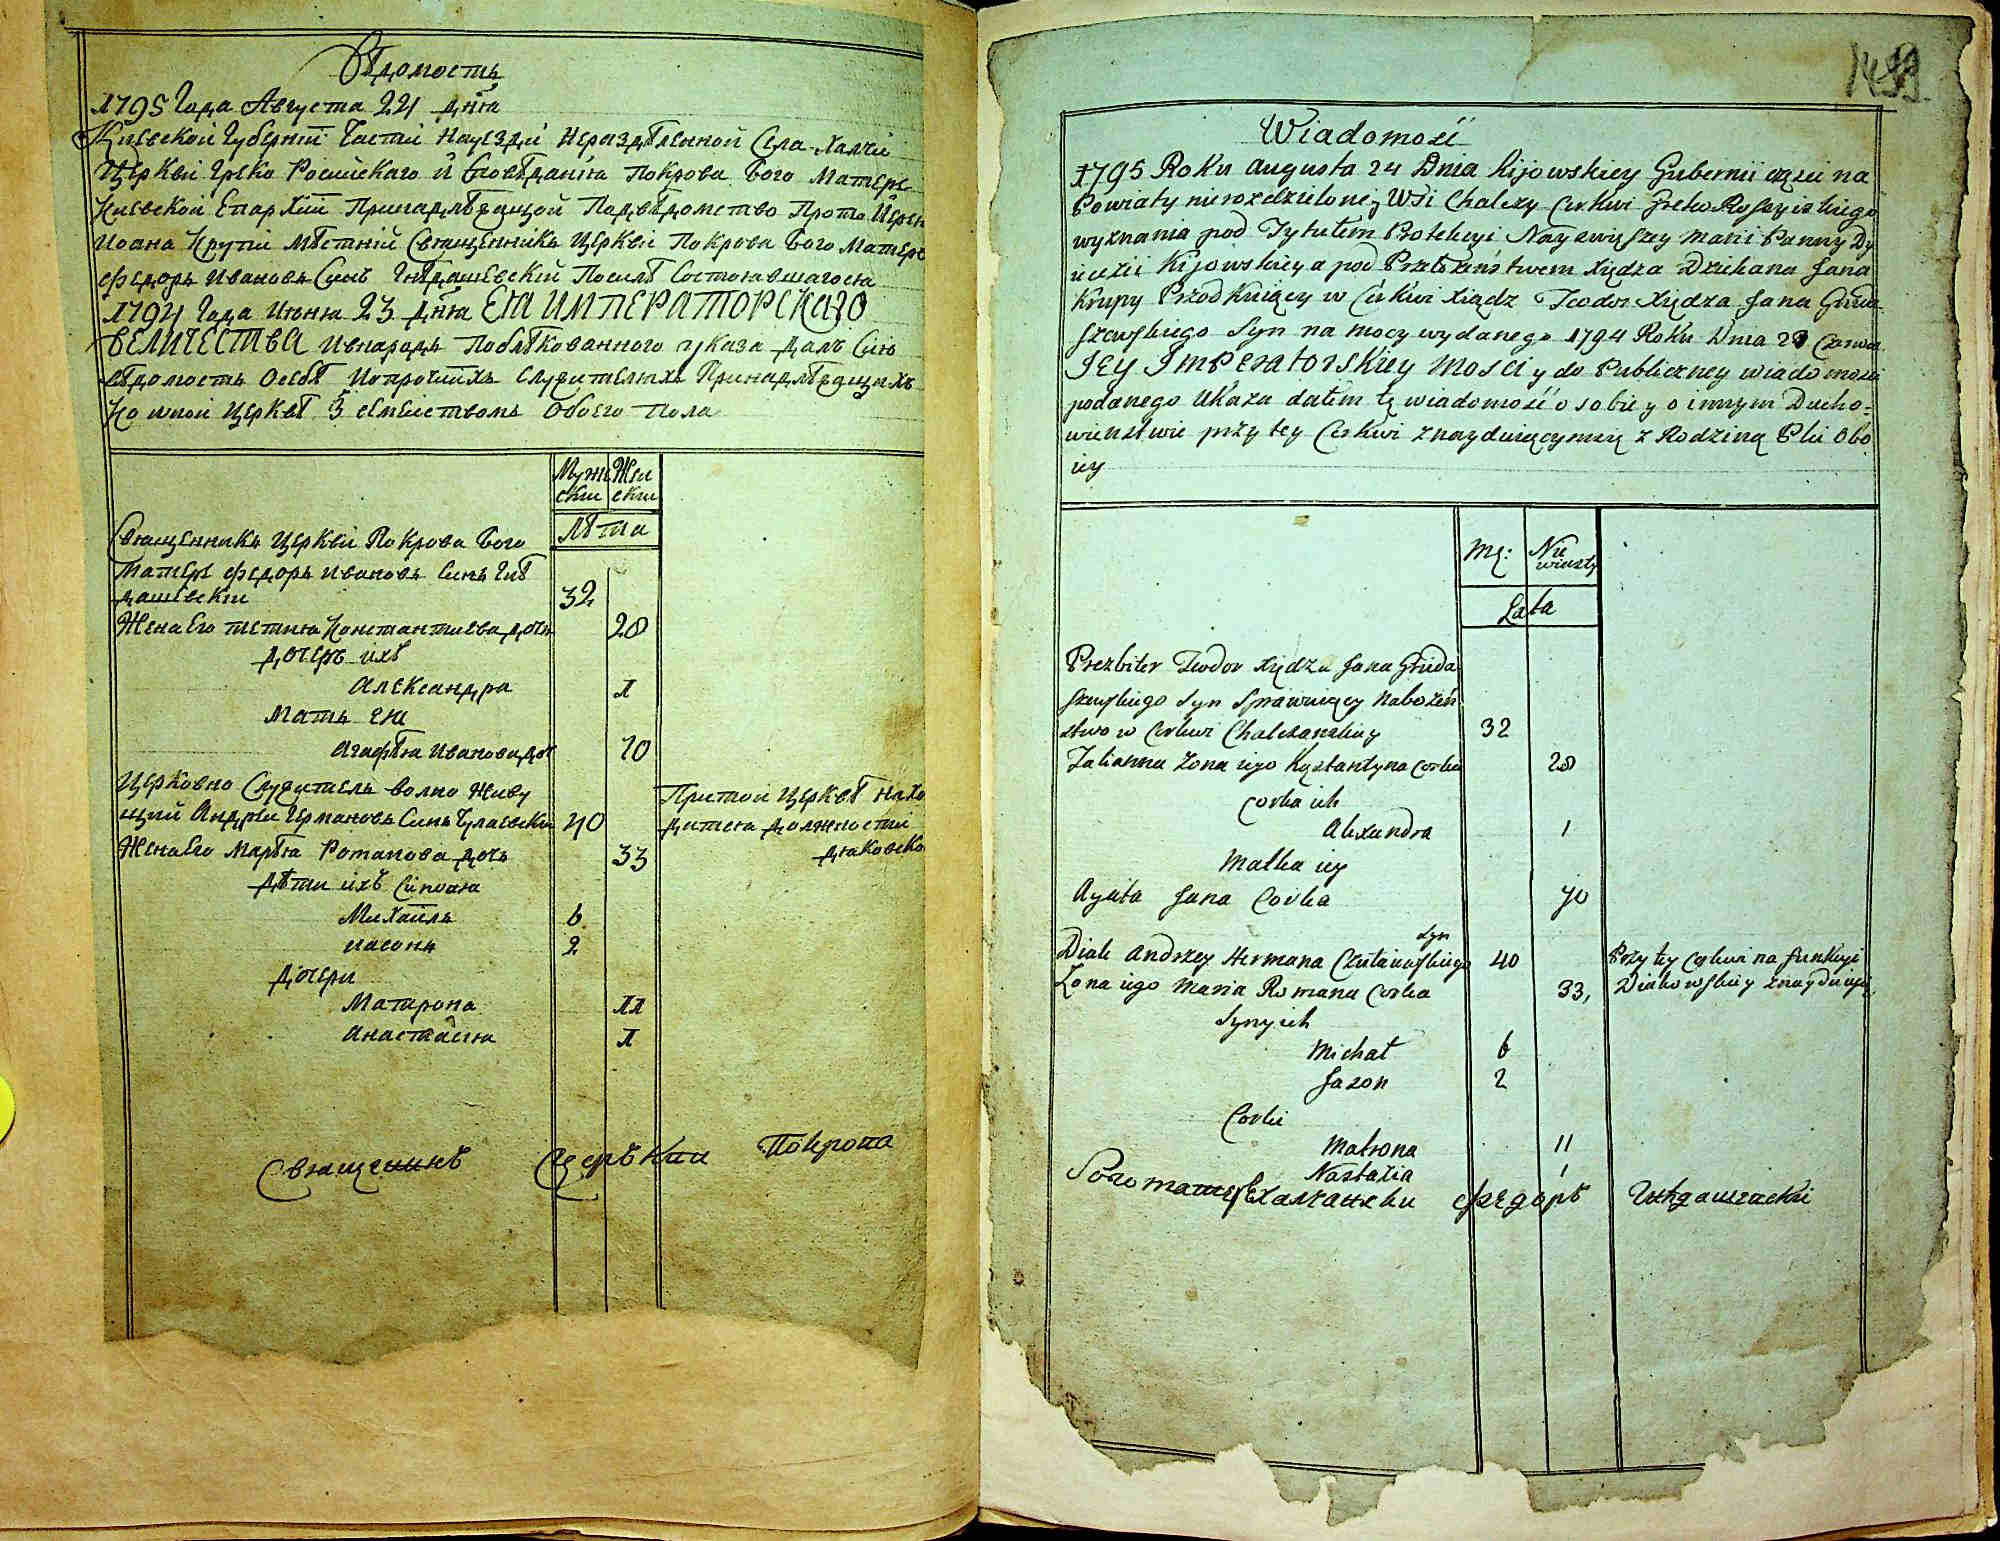 Вѣдомость
1795 Года Августа 24 дня
Киевской Губернїи Части Науезди Нераздѣленной Села Халчи
Церкви Греко Росийскаго Исповѣданїя Покрова Бого Матере
Киевской Епархїи Принадлѣжащой Подвѣдомство Прото Иерея
Иоана Крупи Мѣстній Священникъ Церкви Покрова Бого Матере
Федоръ Ивановъ Синъ Гнѣдашевскій Послѣ Состоявшагося
1794 Года Июня 23 дня ЕЯ ИМПЕРАТОРСКАГО
ВЕЛИЧЕСТВА ивнародъ Поблѣкованного указа Далъ Сию
вѣдомость Осебѣ Ипрочїихъ служителяхъ Принадлѣжащихъ
Ко оной Церквѣ З семействомъ Обоего Пола
Муже Жен
ски ски
Лѣта
Священникъ Церкви Покрова Бого
Матере Федоръ Ивановъ Синъ Гнѣ
дашевскій 32
Жена Его Тетияна Константиева дочь 28
Дочеръ ихъ
Александра 1
Мать ея
Агафѣя Иванова доч 70
Церковно Служитель волно Живу
щий Андрей Германовъ Синъ Чулаевски 40 Притой Церквѣ Нахо
Жена Его Марѣя Романова дочь 33 дится Должностїи
Дяковско
Дѣти ихъ Синовя
Михаилъ 6
Иасонъ 2
Дочери
Матрона 11
Анастасия 1
Священикъ Церъкви Покрова
1499
Wiadomość
1795 Roku Augusta 24 Dnia Kijowskiey Gubernii części na
Powiaty nierozdzieloney Wsi Chalczy Cerkwi Greko Rossyiskiego
wyznania pod Tytułem Protekcyi Nayswyższey Marii Panny Dy
iecezii Kijowskiey a pod Przełożeństwem Xiędza Dziekana Jana
Krupy Przodkuiący w Cerkwi Xiądz Teodor Xiędza Jana Gnida
szewskiego Syn na mocy wydanego 1794 Roku Dnia 23 Czerwca
Jey Imperatorskiey Mości y do Publiczney wiadomości
podanego Ukaza dałem tę wiadomość o sobie y o innym Ducho-
wienstwie przy tey Cerkwi znayduiącymsię z Rodziną Płci Obo
iey
Mę: Nie
wiasty
Lata
Prezbiter Teodor Xiędza Jana Gnida
szewskiego Syn Sprawuiący Nabożeń
stwo w Cerkwi Chalczanskiey 32
Talianna Zona iego Kąstantyna Corka 28
Corka ich
Alexandra 1
Matka iey
Agata Jana Corka 70
Syn
Diak Andrzey Hermana Czułaiewskiego 40 Przy tey Cerkwi na funkcyi
Zona iego Maria Romana Corka 33, Diakowskiey znayduiąsię
Synyich
Michał 6
Jazon 2
Corki
Matrona 11
Nastazia 1
Богоматере Халчански Федоръ Гнѣдашевски